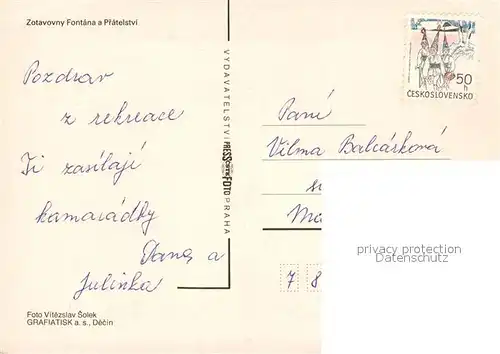 Zotavovny Fontána a Přátelství
Pozdrav
z rekreace
Ti zasílají
kamarádky
Dana a
Julinka
Foto Vítězslav Šolek
GRAFIATISK a. s., Děčín
VYDAVATELSTVÍ PRESSFOTO PRAHA
50 h
ČESKOSLOVENSKO
Paní
Vilma Balcárková
7 8
privacy protection
Datenschutz